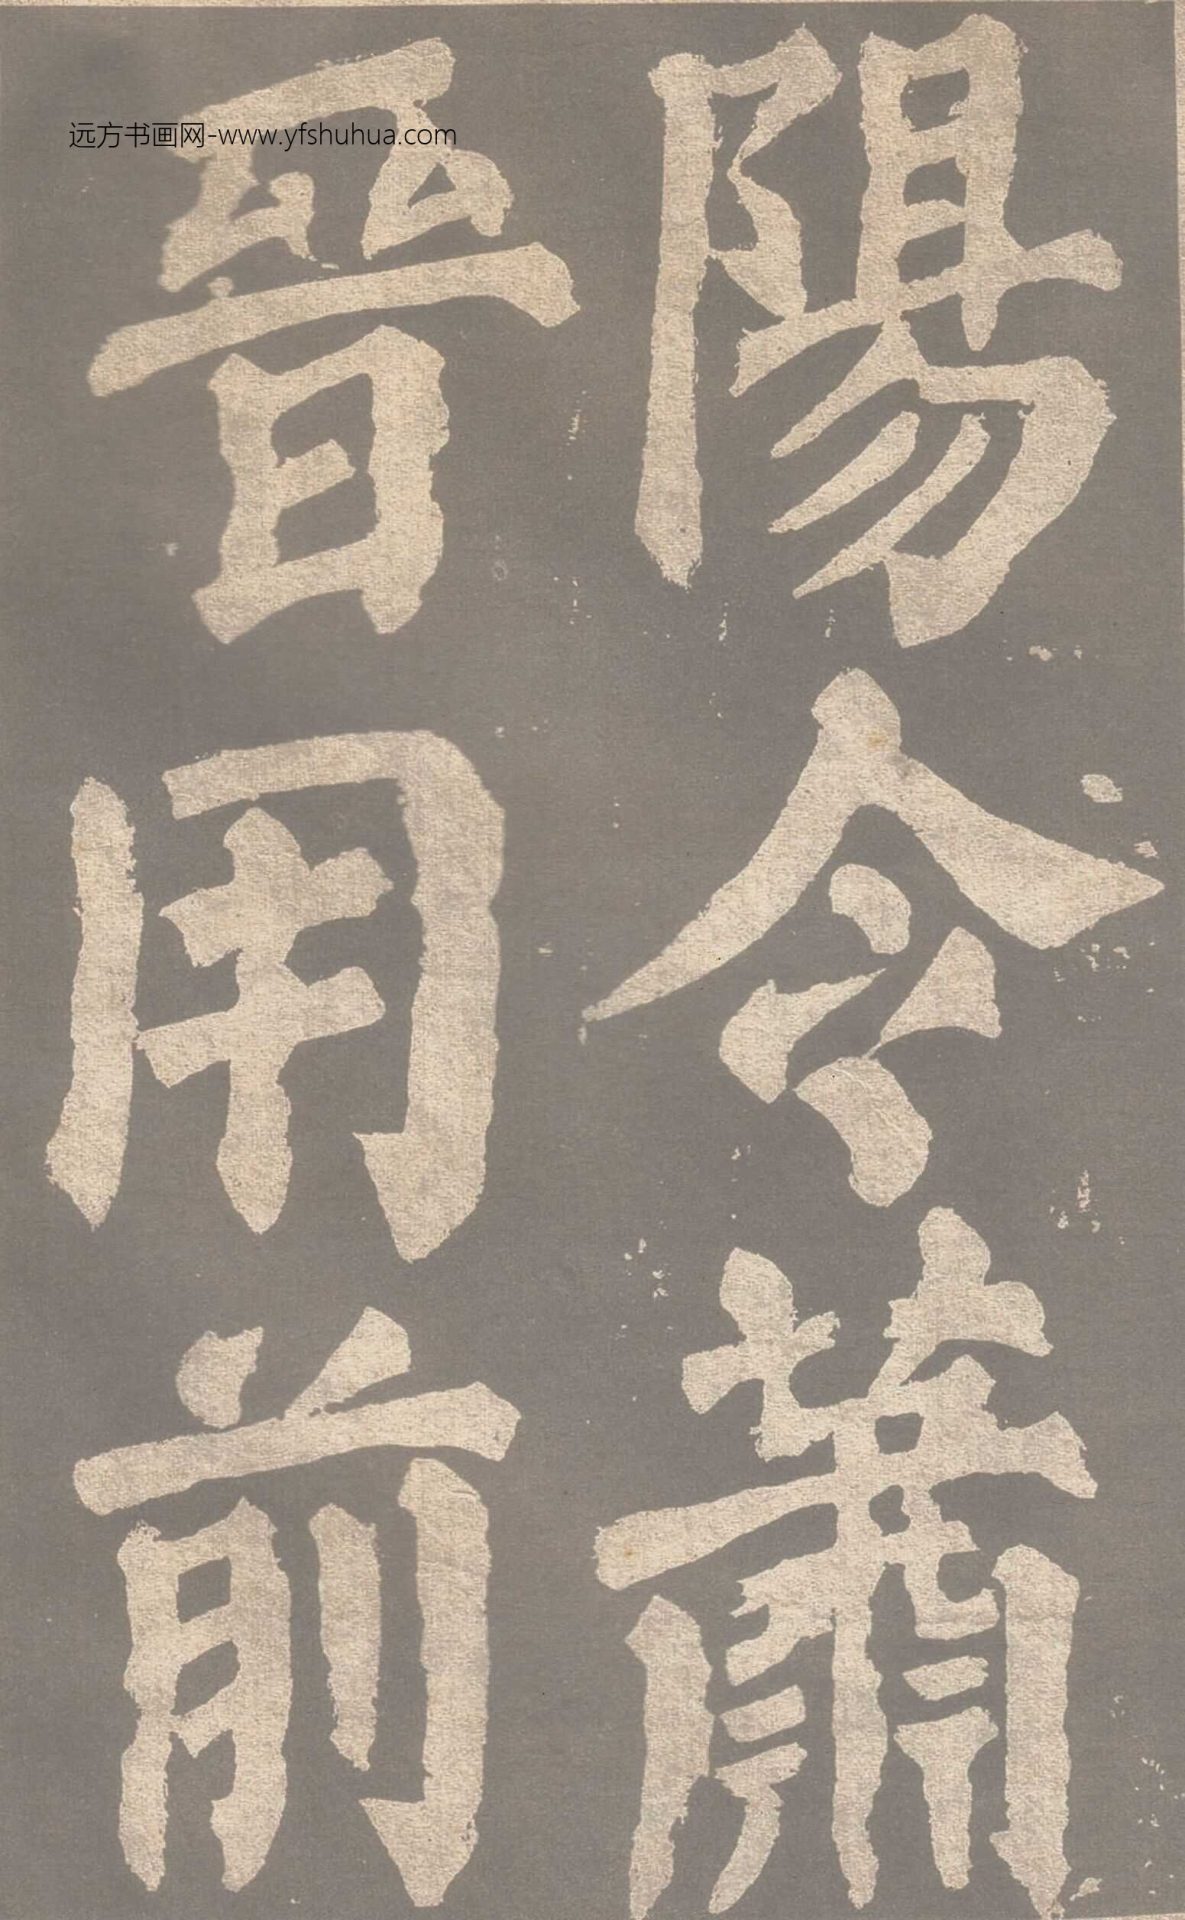 陽令蕭
晉用前
远方书画网-www.yfshuhua.com